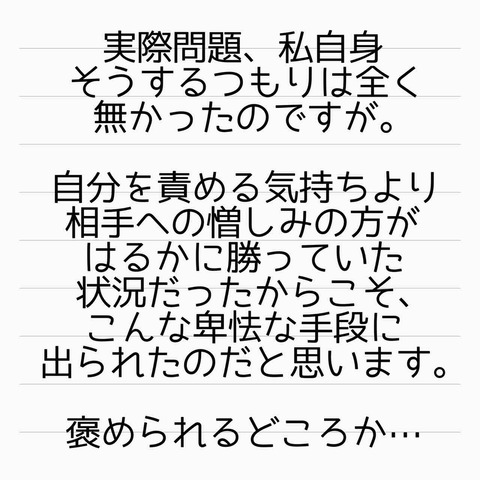 実際問題、私自身
そうするつもりは全く
無かったのですが。
自分を責める気持ちより
相手への憎しみの方が
はるかに勝っていた
状況だったからこそ、
こんな卑怯な手段に
出られたのだと思います。
褒められるどころか…